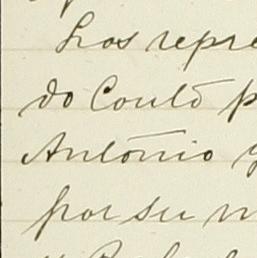 Los repre
do Contō p
Antōnio y
por su m